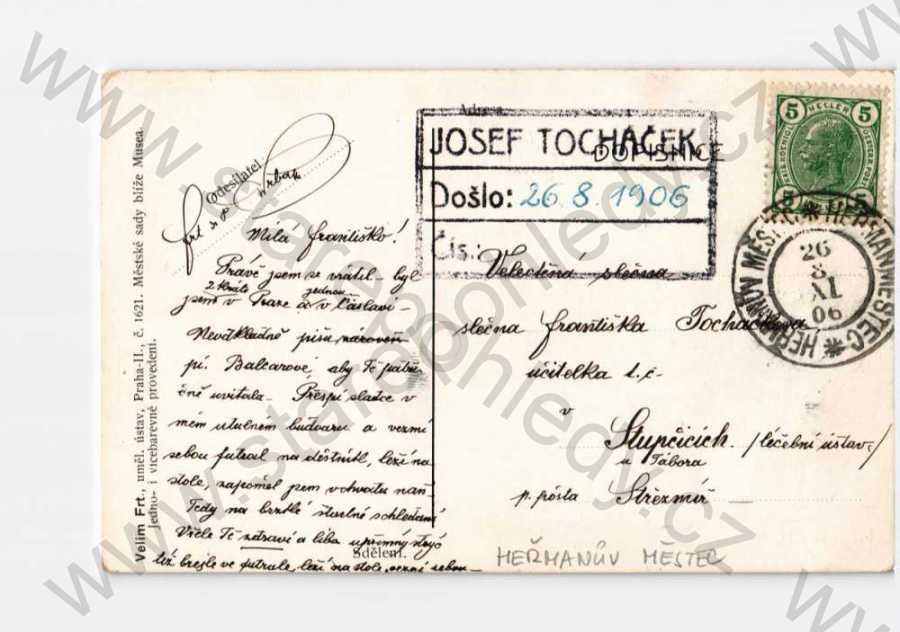 Velim Frt., uměl. ústav, Praha-II., č. 1621. Městské sady blíže Musea.
Jedno- i vícebarevné provedení.
Odesílatel
Milá Františko!
Právě jsem se vrátil – byl
2 krát jednou
jsem v Praze a v Čáslavi
Neodkladně píšu zároveň
pí. Balcarové, aby Tě patřič
čně uvítala. – Přespi sladce v
mém útulném budoaru a vezmi
sebou futrál na deštník, leží na
stole, zapoměl jsem v chvatu naň
Tedy na brzké šťastné schledání
Vřele Tě zdraví a líbá upřímný strýc
též brejle ve futrále, leží na stole, vezmi sebou –
Sdělení.
Adresa
DOPISNICE
JOSEF TOCHÁČEK
Došlo: 26. 8. 1906
Čís.:
Velectěná slečna
slečna Františka Tocháčkova
učitelka t.č.
v
Stupčicích /léčební ústav/
u Tábora
p. pošta Střezmíř
HEŘMANŮV MĚSTEC
5 HELLER 5
5 5
HEŘMANŮV MĚSTEC * HERMANNMĚSTEC *
26
8
XI
06
www.starepohledy.cz